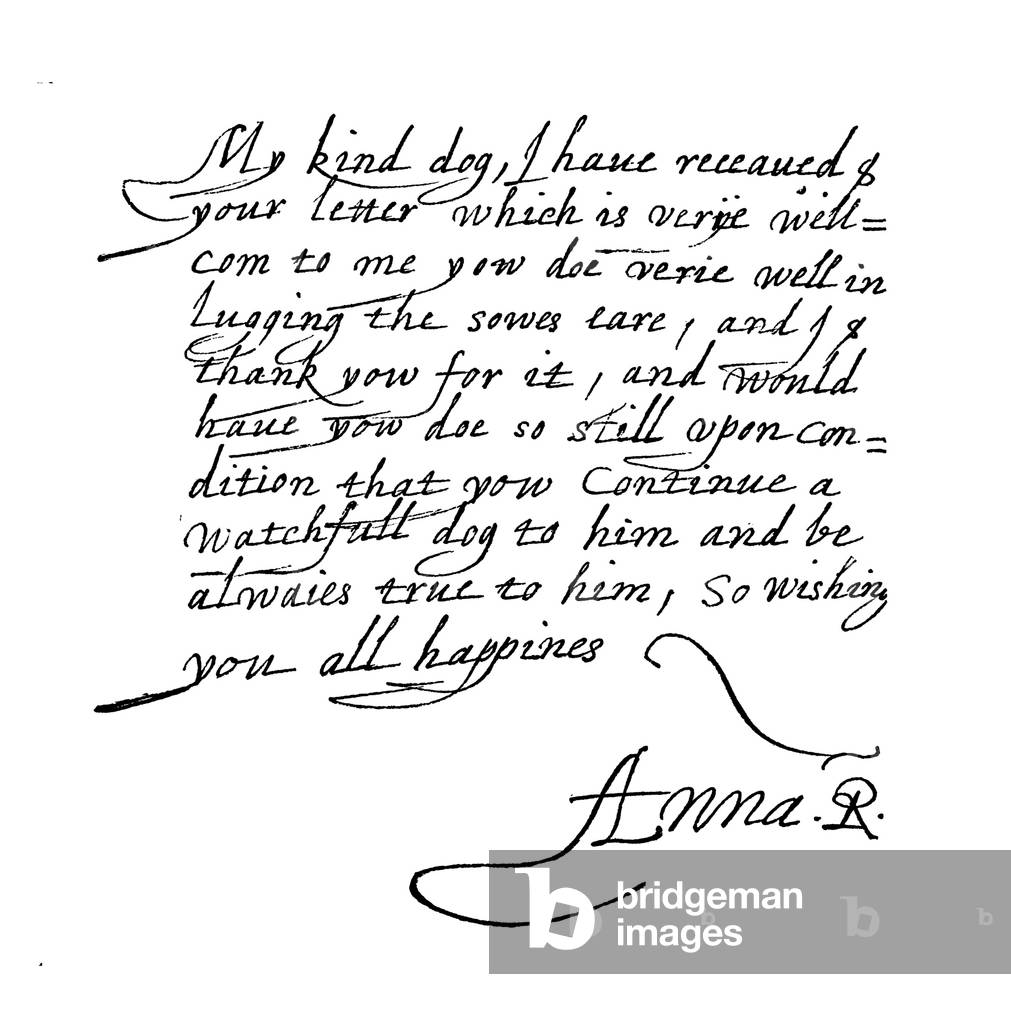 My kind dog, I haue receaued
your letter which is verie well=
com to me yow doe verie well in
lugging the sowes eare, and I
thank yow for it, and would
haue yow doe so still upon con=
dition that yow continue a
watchfull dog to him and be
alwaies true to him, So wishing
you all happines
Anna. R.
bridgeman
images